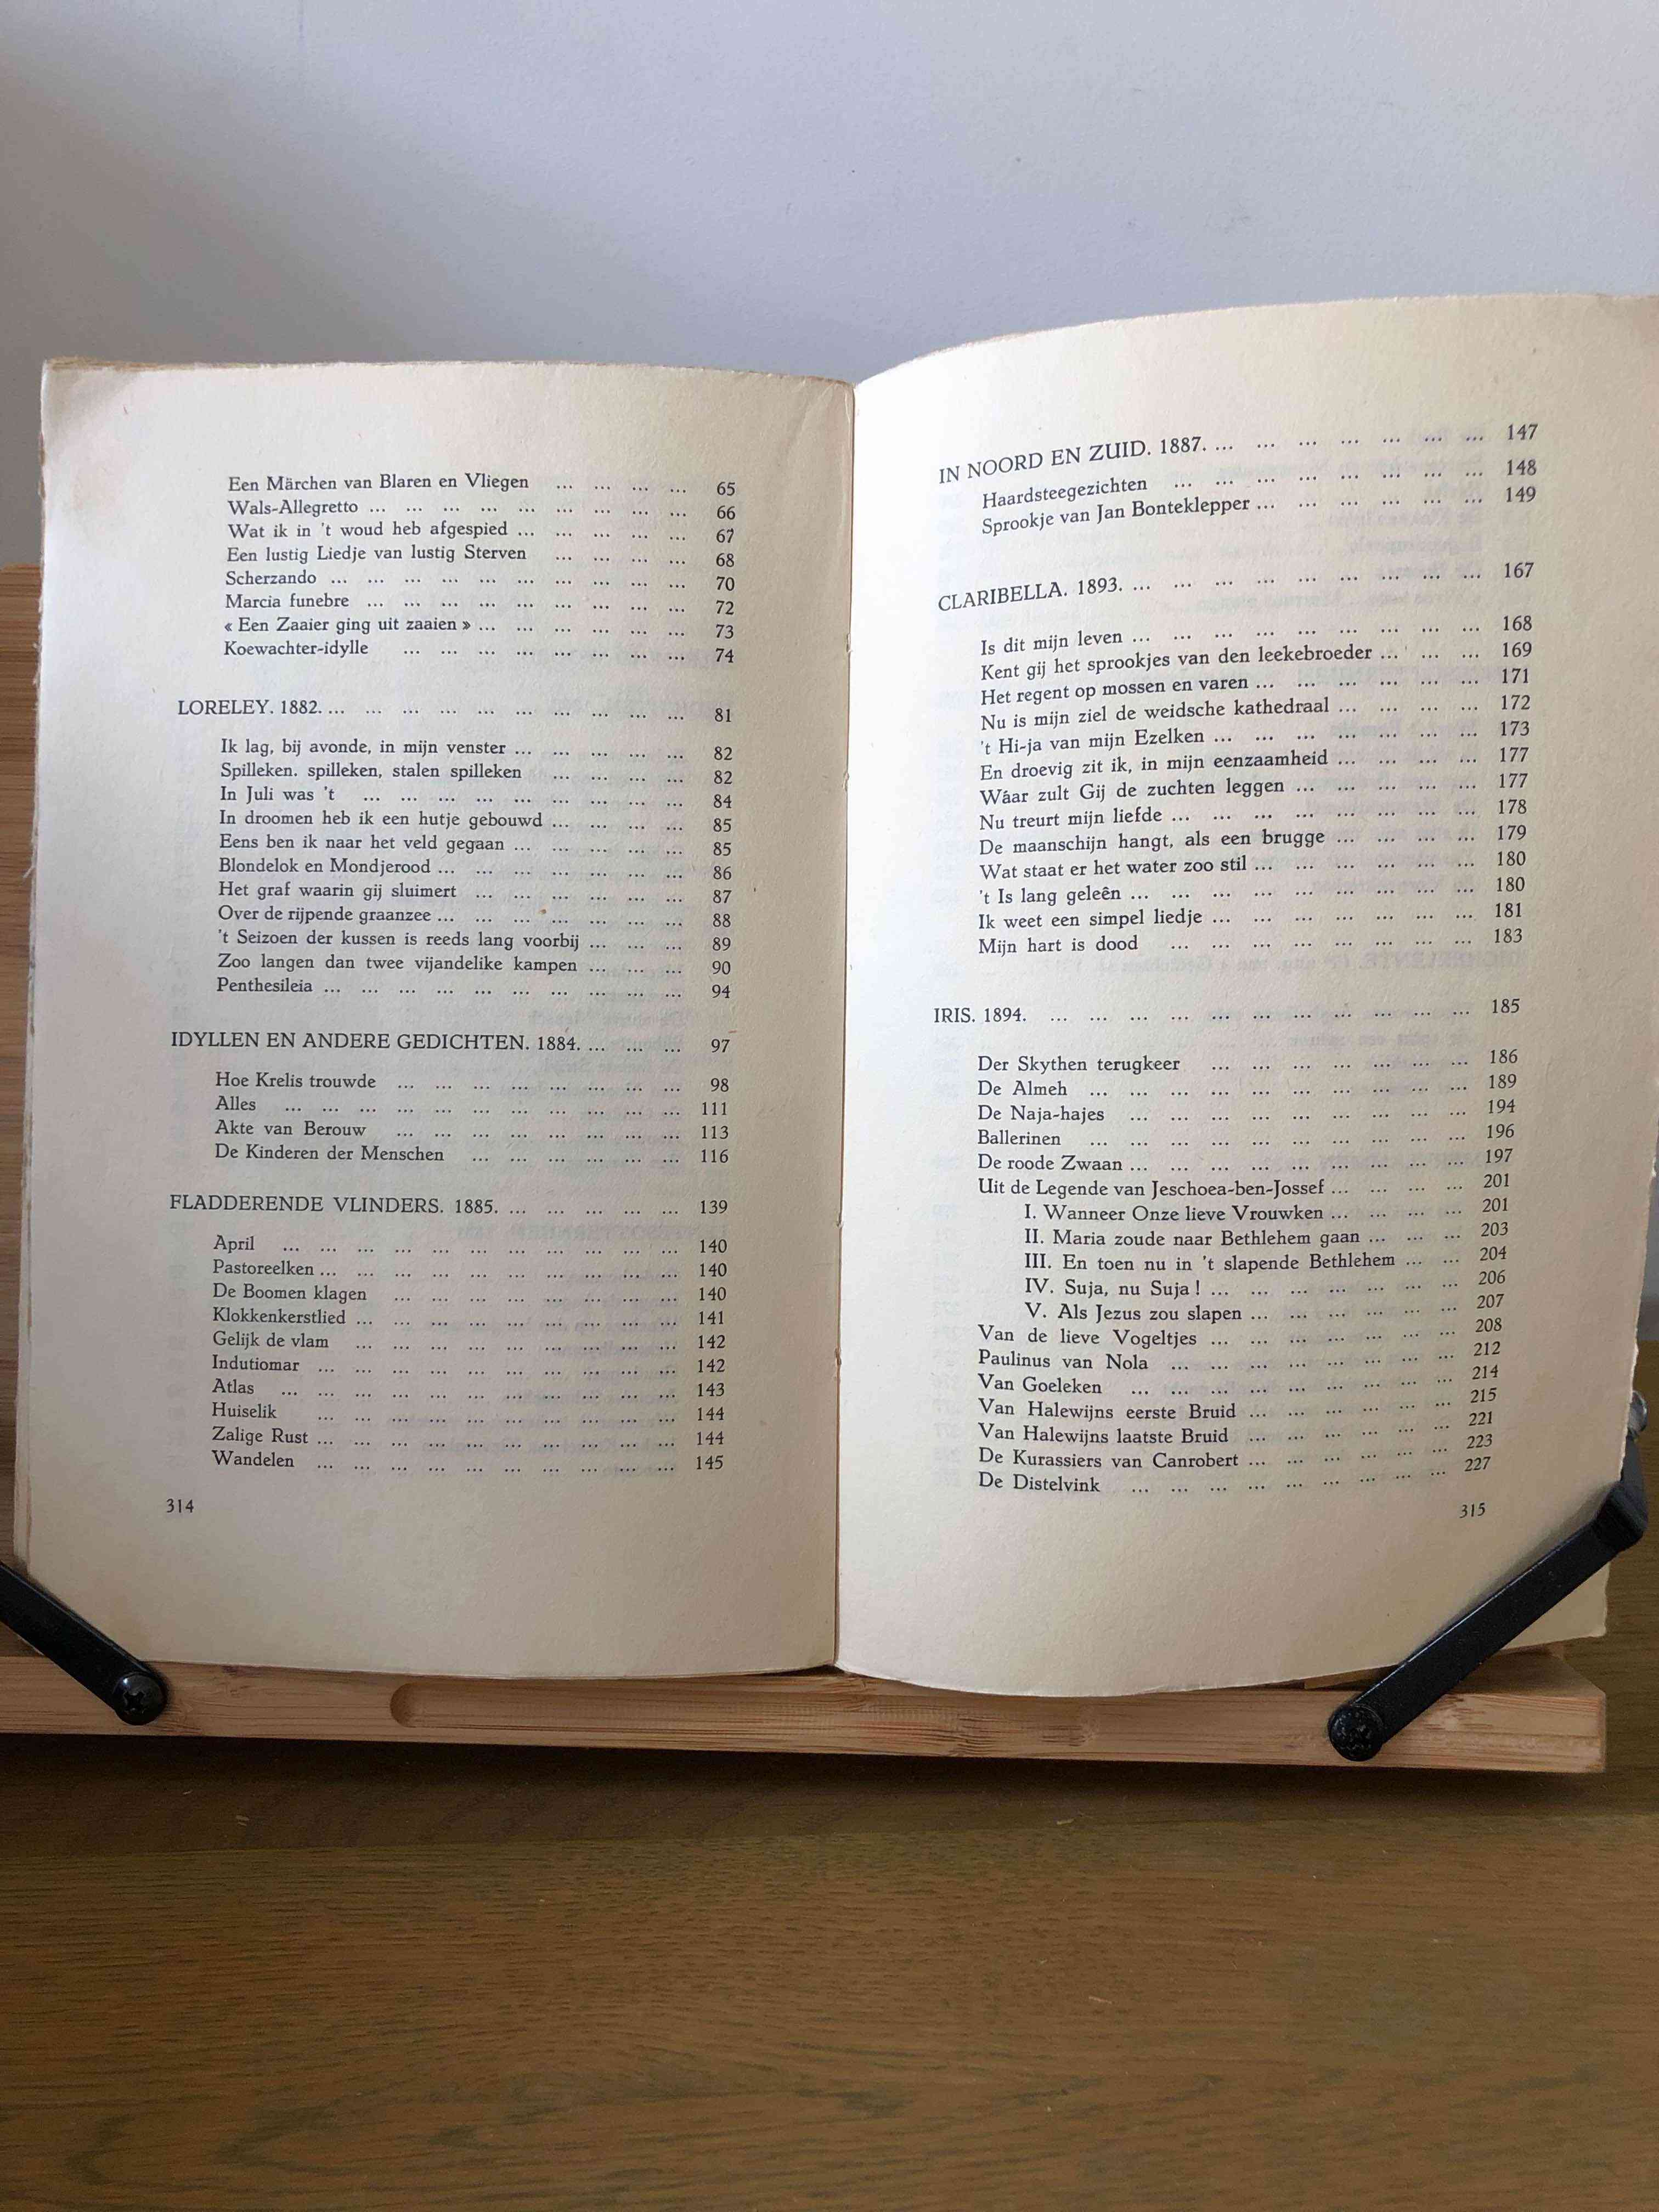 Een Märchen van Blaren en Vliegen ... ... ... ... 65
Wals-Allegretto ... ... ... ... ... ... ... ... ... 66
Wat ik in 't woud heb afgespied ... ... ... ... ... 67
Een lustig Liedje van lustig Sterven ... ... ... ... 68
Scherzando ... ... ... ... ... ... ... ... ... ... 70
Marcia funebre ... ... ... ... ... ... ... ... ... 72
« Een Zaaier ging uit zaaien » ... ... ... ... ... ... 73
Koewachter-idylle ... ... ... ... ... ... ... ... 74
LORELEY. 1882. ... ... ... ... ... ... ... ... ... ... 81
Ik lag, bij avonde, in mijn venster ... ... ... ... ... 82
Spilleken. spilleken, stalen spilleken ... ... ... ... 82
In Juli was 't ... ... ... ... ... ... ... ... ... 84
In droomen heb ik een hutje gebouwd ... ... ... ... 85
Eens ben ik naar het veld gegaan ... ... ... ... ... 85
Blondelok en Mondjerood ... ... ... ... ... ... ... 86
Het graf waarin gij sluimert ... ... ... ... ... ... 87
Over de rijpende graanzee ... ... ... ... ... ... ... 88
't Seizoen der kussen is reeds lang voorbij ... ... ... 89
Zoo langen dan twee vijandelike kampen ... ... ... 90
Penthesileia ... ... ... ... ... ... ... ... ... ... 94
IDYLLEN EN ANDERE GEDICHTEN. 1884. ... ... ... 97
Hoe Krelis trouwde ... ... ... ... ... ... ... ... 98
Alles ... ... ... ... ... ... ... ... ... ... ... 111
Akte van Berouw ... ... ... ... ... ... ... ... 113
De Kinderen der Menschen ... ... ... ... ... ... 116
FLADDERENDE VLINDERS. 1885. ... ... ... ... ... 139
April ... ... ... ... ... ... ... ... ... ... ... 140
Pastoreelken ... ... ... ... ... ... ... ... ... ... 140
De Boomen klagen ... ... ... ... ... ... ... ... 140
Klokkenkerstlied ... ... ... ... ... ... ... ... ... 141
Gelijk de vlam ... ... ... ... ... ... ... ... ... 142
Indutiomar ... ... ... ... ... ... ... ... ... ... 142
Atlas ... ... ... ... ... ... ... ... ... ... ... 143
Huiselik ... ... ... ... ... ... ... ... ... ... 144
Zalige Rust ... ... ... ... ... ... ... ... ... ... 144
Wandelen ... ... ... ... ... ... ... ... ... ... 145
314
IN NOORD EN ZUID. 1887. ... ... ... ... ... ... ... 147
Haardsteegezichten ... ... ... ... ... ... ... ... 148
Sprookje van Jan Bonteklepper ... ... ... ... ... ... 149
CLARIBELLA. 1893. ... ... ... ... ... ... ... ... ... 167
Is dit mijn leven ... ... ... ... ... ... ... ... ... 168
Kent gij het sprookjes van den leekebroeder ... ... ... 169
Het regent op mossen en varen ... ... ... ... ... ... 171
Nu is mijn ziel de weidsche kathedraal ... ... ... ... 172
't Hi-ja van mijn Ezelken ... ... ... ... ... ... ... 173
En droevig zit ik, in mijn eenzaamheid ... ... ... ... 177
Wáar zult Gij de zuchten leggen ... ... ... ... ... 177
Nu treurt mijn liefde ... ... ... ... ... ... ... ... 178
De maanschijn hangt, als een brugge ... ... ... ... 179
Wat staat er het water zoo stil ... ... ... ... ... ... 180
't Is lang geleên ... ... ... ... ... ... ... ... ... 180
Ik weet een simpel liedje ... ... ... ... ... ... ... 181
Mijn hart is dood ... ... ... ... ... ... ... ... 183
IRIS. 1894. ... ... ... ... ... ... ... ... ... ... ... 185
Der Skythen terugkeer ... ... ... ... ... ... ... 186
De Almeh ... ... ... ... ... ... ... ... ... ... 189
De Naja-hajes ... ... ... ... ... ... ... ... ... 194
Ballerinen ... ... ... ... ... ... ... ... ... ... 196
De roode Zwaan ... ... ... ... ... ... ... ... ... 197
Uit de Legende van Jeschoea-ben-Jossef ... ... ... ... 201
I. Wanneer Onze lieve Vrouwken ... ... ... ... 201
II. Maria zoude naar Bethlehem gaan ... ... ... 203
III. En toen nu in 't slapende Bethlehem ... ... 204
IV. Suja, nu Suja ! ... ... ... ... ... ... ... 206
V. Als Jezus zou slapen ... ... ... ... ... ... 207
Van de lieve Vogeltjes ... ... ... ... ... ... ... 208
Paulinus van Nola ... ... ... ... ... ... ... ... 212
Van Goeleken ... ... ... ... ... ... ... ... ... 214
Van Halewijns eerste Bruid ... ... ... ... ... ... 215
Van Halewijns laatste Bruid ... ... ... ... ... ... 221
De Kurassiers van Canrobert ... ... ... ... ... ... 223
De Distelvink ... ... ... ... ... ... ... ... ... 227
315